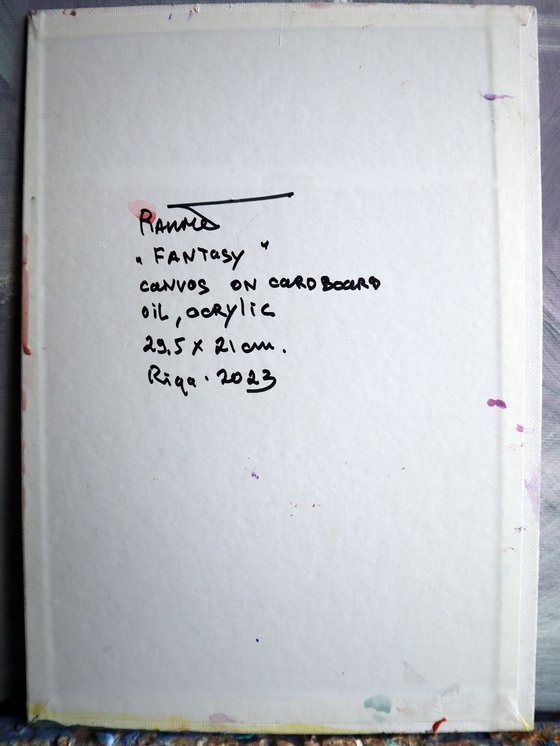 „Fantasy"
canvas on cardboard
oil, acrylic
29,5 x 21 cm.
Riga. 2023